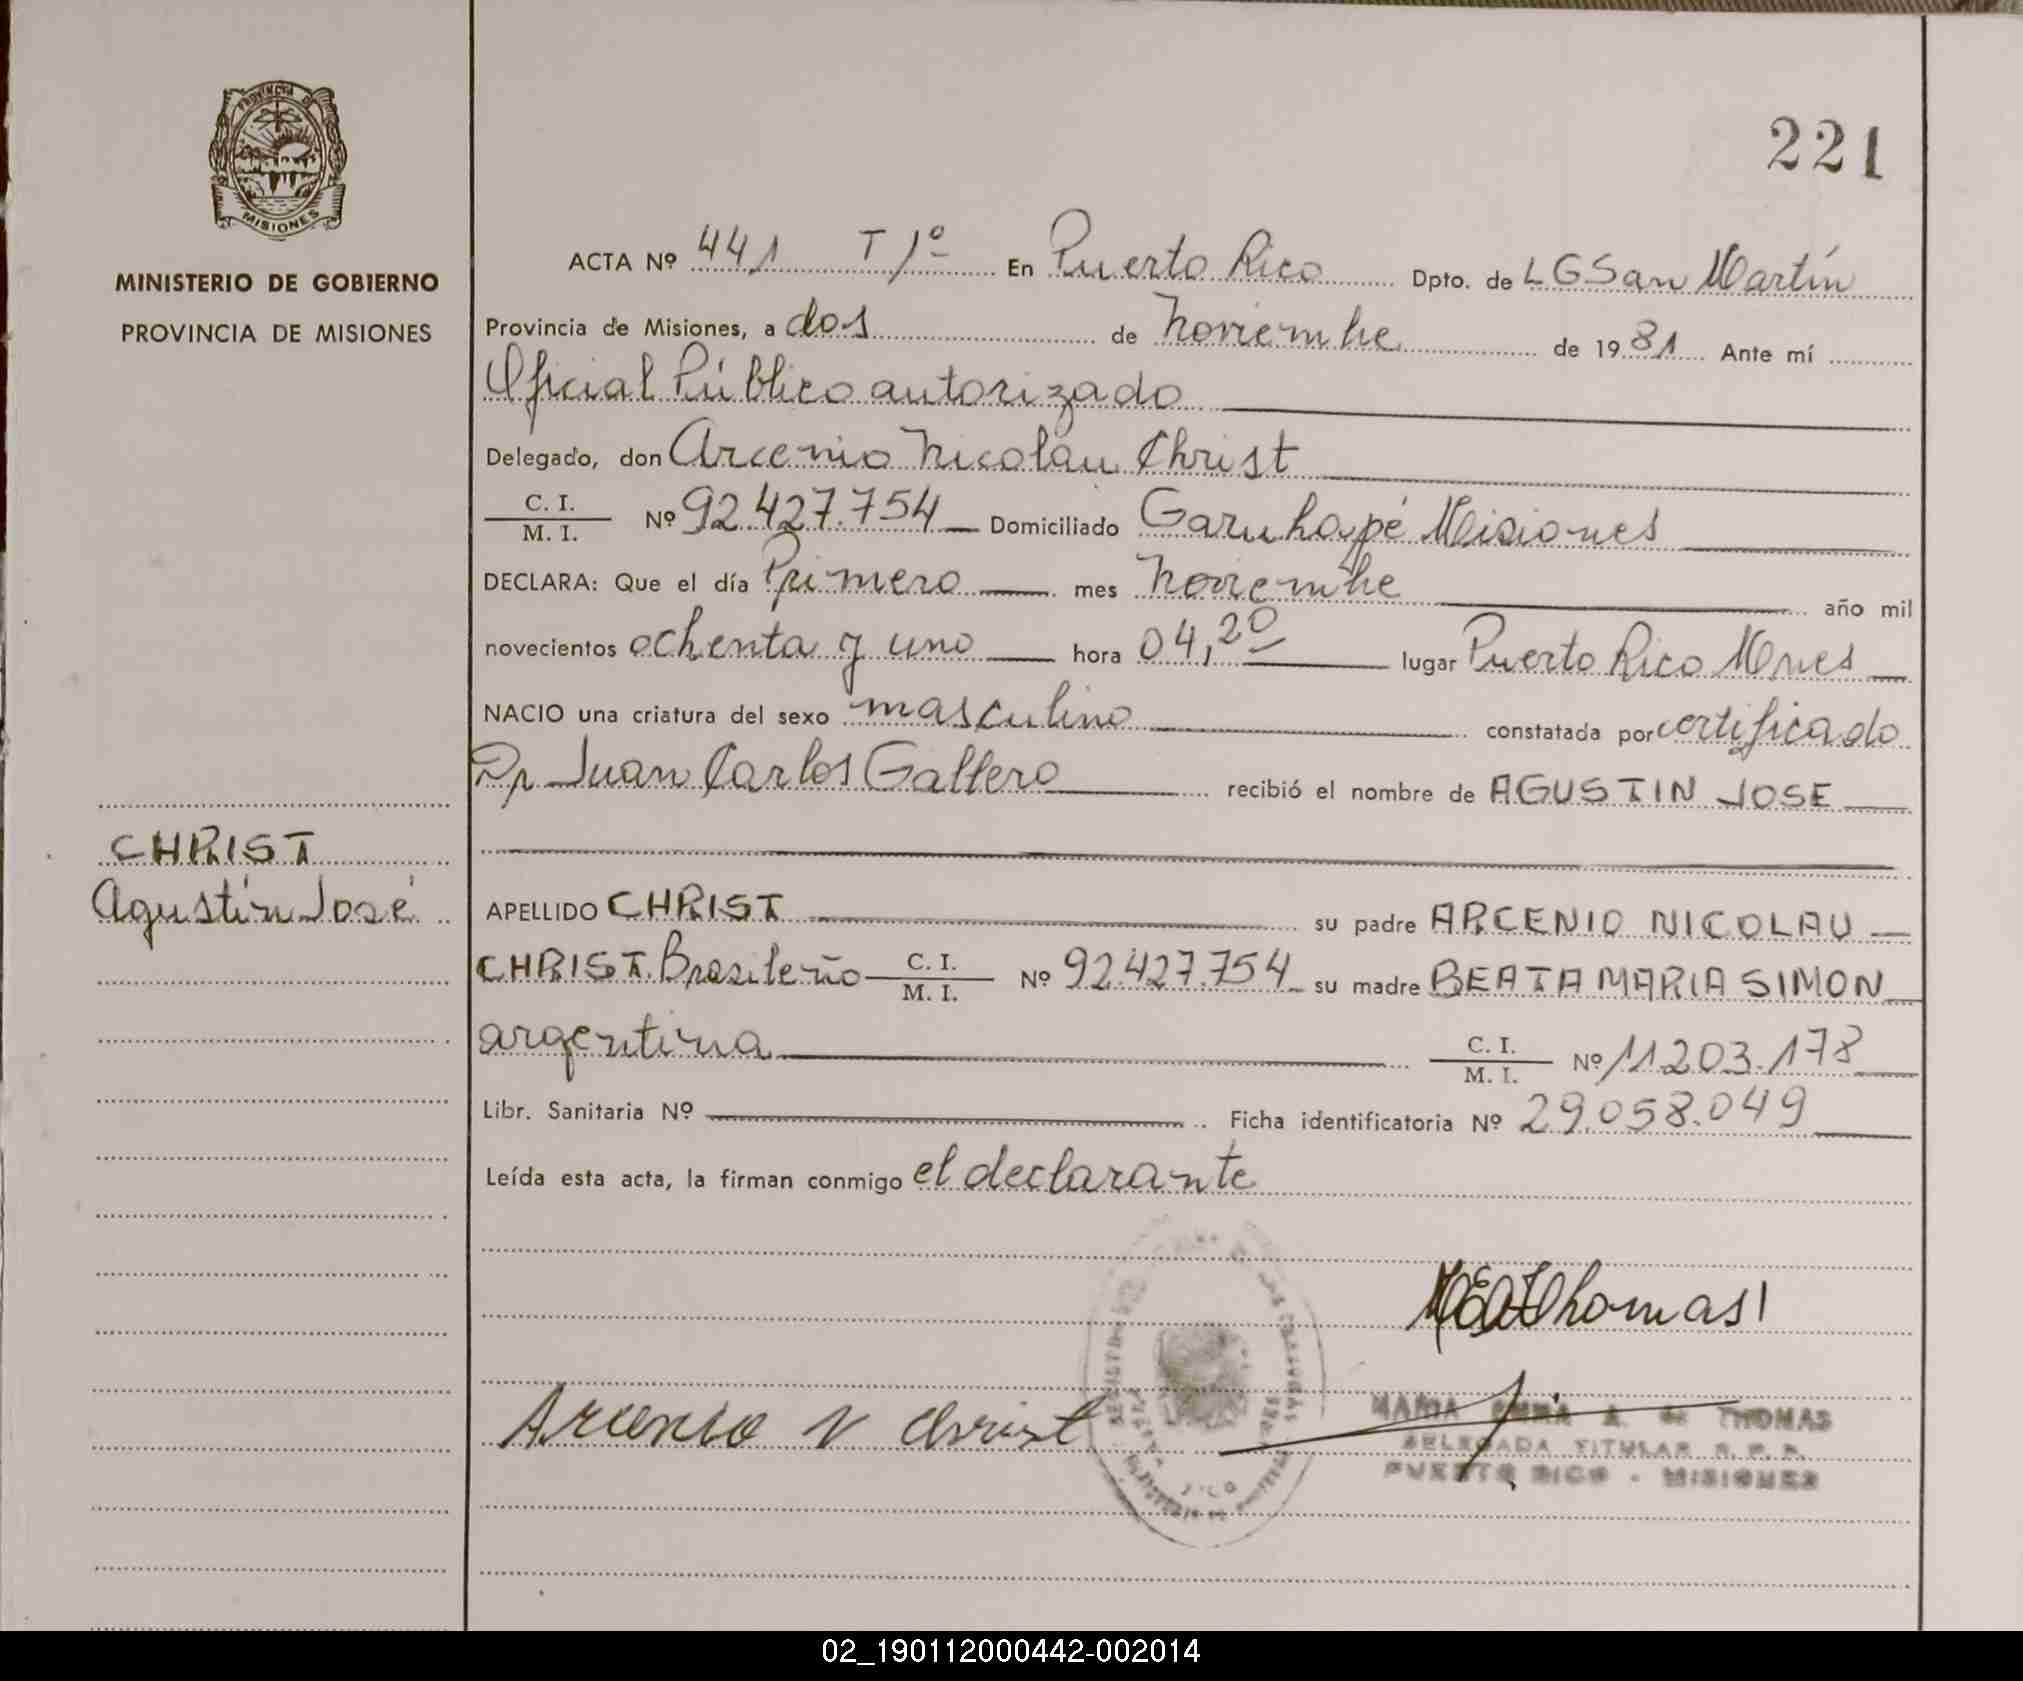 PROVINCIA DE
MISIONES
MINISTERIO DE GOBIERNO
PROVINCIA DE MISIONES
221
ACTA Nº 441 T 1º En Puerto Rico Dpto. de L G San Martín
Provincia de Misiones, a dos de Noviembre de 1981 Ante mí
Oficial Público autorizado
Delegado, don Arcenio Nicolau Christ
C. I.
M. I. Nº 92.427.754 Domiciliado Garuhapé Misiones
DECLARA: Que el día Primero mes Noviembre año mil
novecientos ochenta y uno hora 04,20 lugar Puerto Rico Mnes
NACIO una criatura del sexo masculino constatada por certificado
Dr Juan Carlos Gallero recibió el nombre de AGUSTIN JOSE
CHRIST
Agustín José
APELLIDO CHRIST su padre ARCENIO NICOLAU
CHRIST. Brasileño C. I. M. I. Nº 92.427.754 su madre BEATA MARIA SIMON
argentina C. I. M. I. Nº 11.203.178
Libr. Sanitaria Nº Ficha identificatoria Nº 29.058.049
Leída esta acta, la firman conmigo el declarante
Thomas
Arcenio N Christ
MARIA EMMA A. de THOMAS
DELEGADA TITULAR R. P. P.
PUERTO RICO - MISIONES
02_190112000442-002014